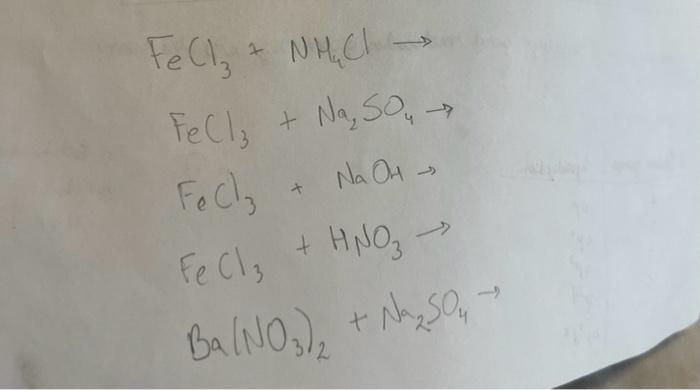 FeCl₃ + NH₄Cl →
FeCl₃ + Na₂SO₄ →
FeCl₃ + NaOH →
FeCl₃ + HNO₃ →
Ba(NO₃)₂ + Na₂SO₄ →